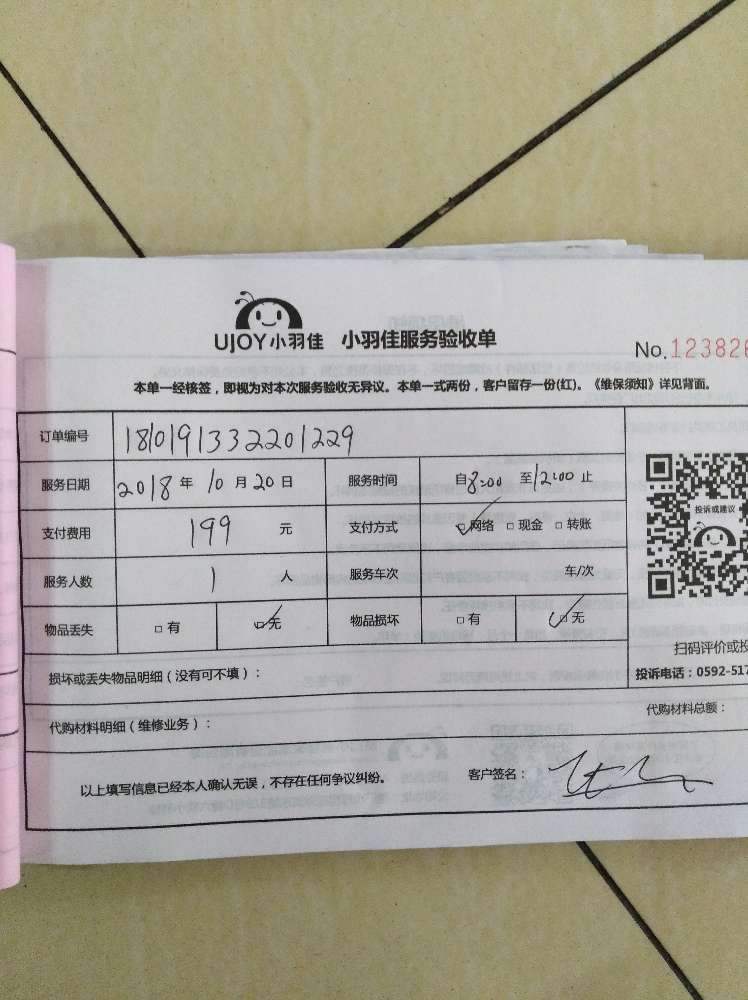 UJOY小羽佳 小羽佳服务验收单
No.123826
本单一经核签，即视为对本次服务验收无异议。本单一式两份，客户留存一份(红)。《维保须知》详见背面。
订单编号 1810191332201229
服务日期 2018年10月20日 服务时间 自8:00至12:00止
支付费用 199元 支付方式 ☑网络 □现金 □转账
投诉或建议
服务人数 1人 服务车次 车/次
物品丢失 □有 ☑无 物品损坏 □有 ☑无
扫码评价或投
损坏或丢失物品明细（没有可不填）：
投诉电话：0592-517
代购材料明细（维修业务）：
代购材料总额：
以上填写信息已经本人确认无误，不存在任何争议纠纷。 客户签名：